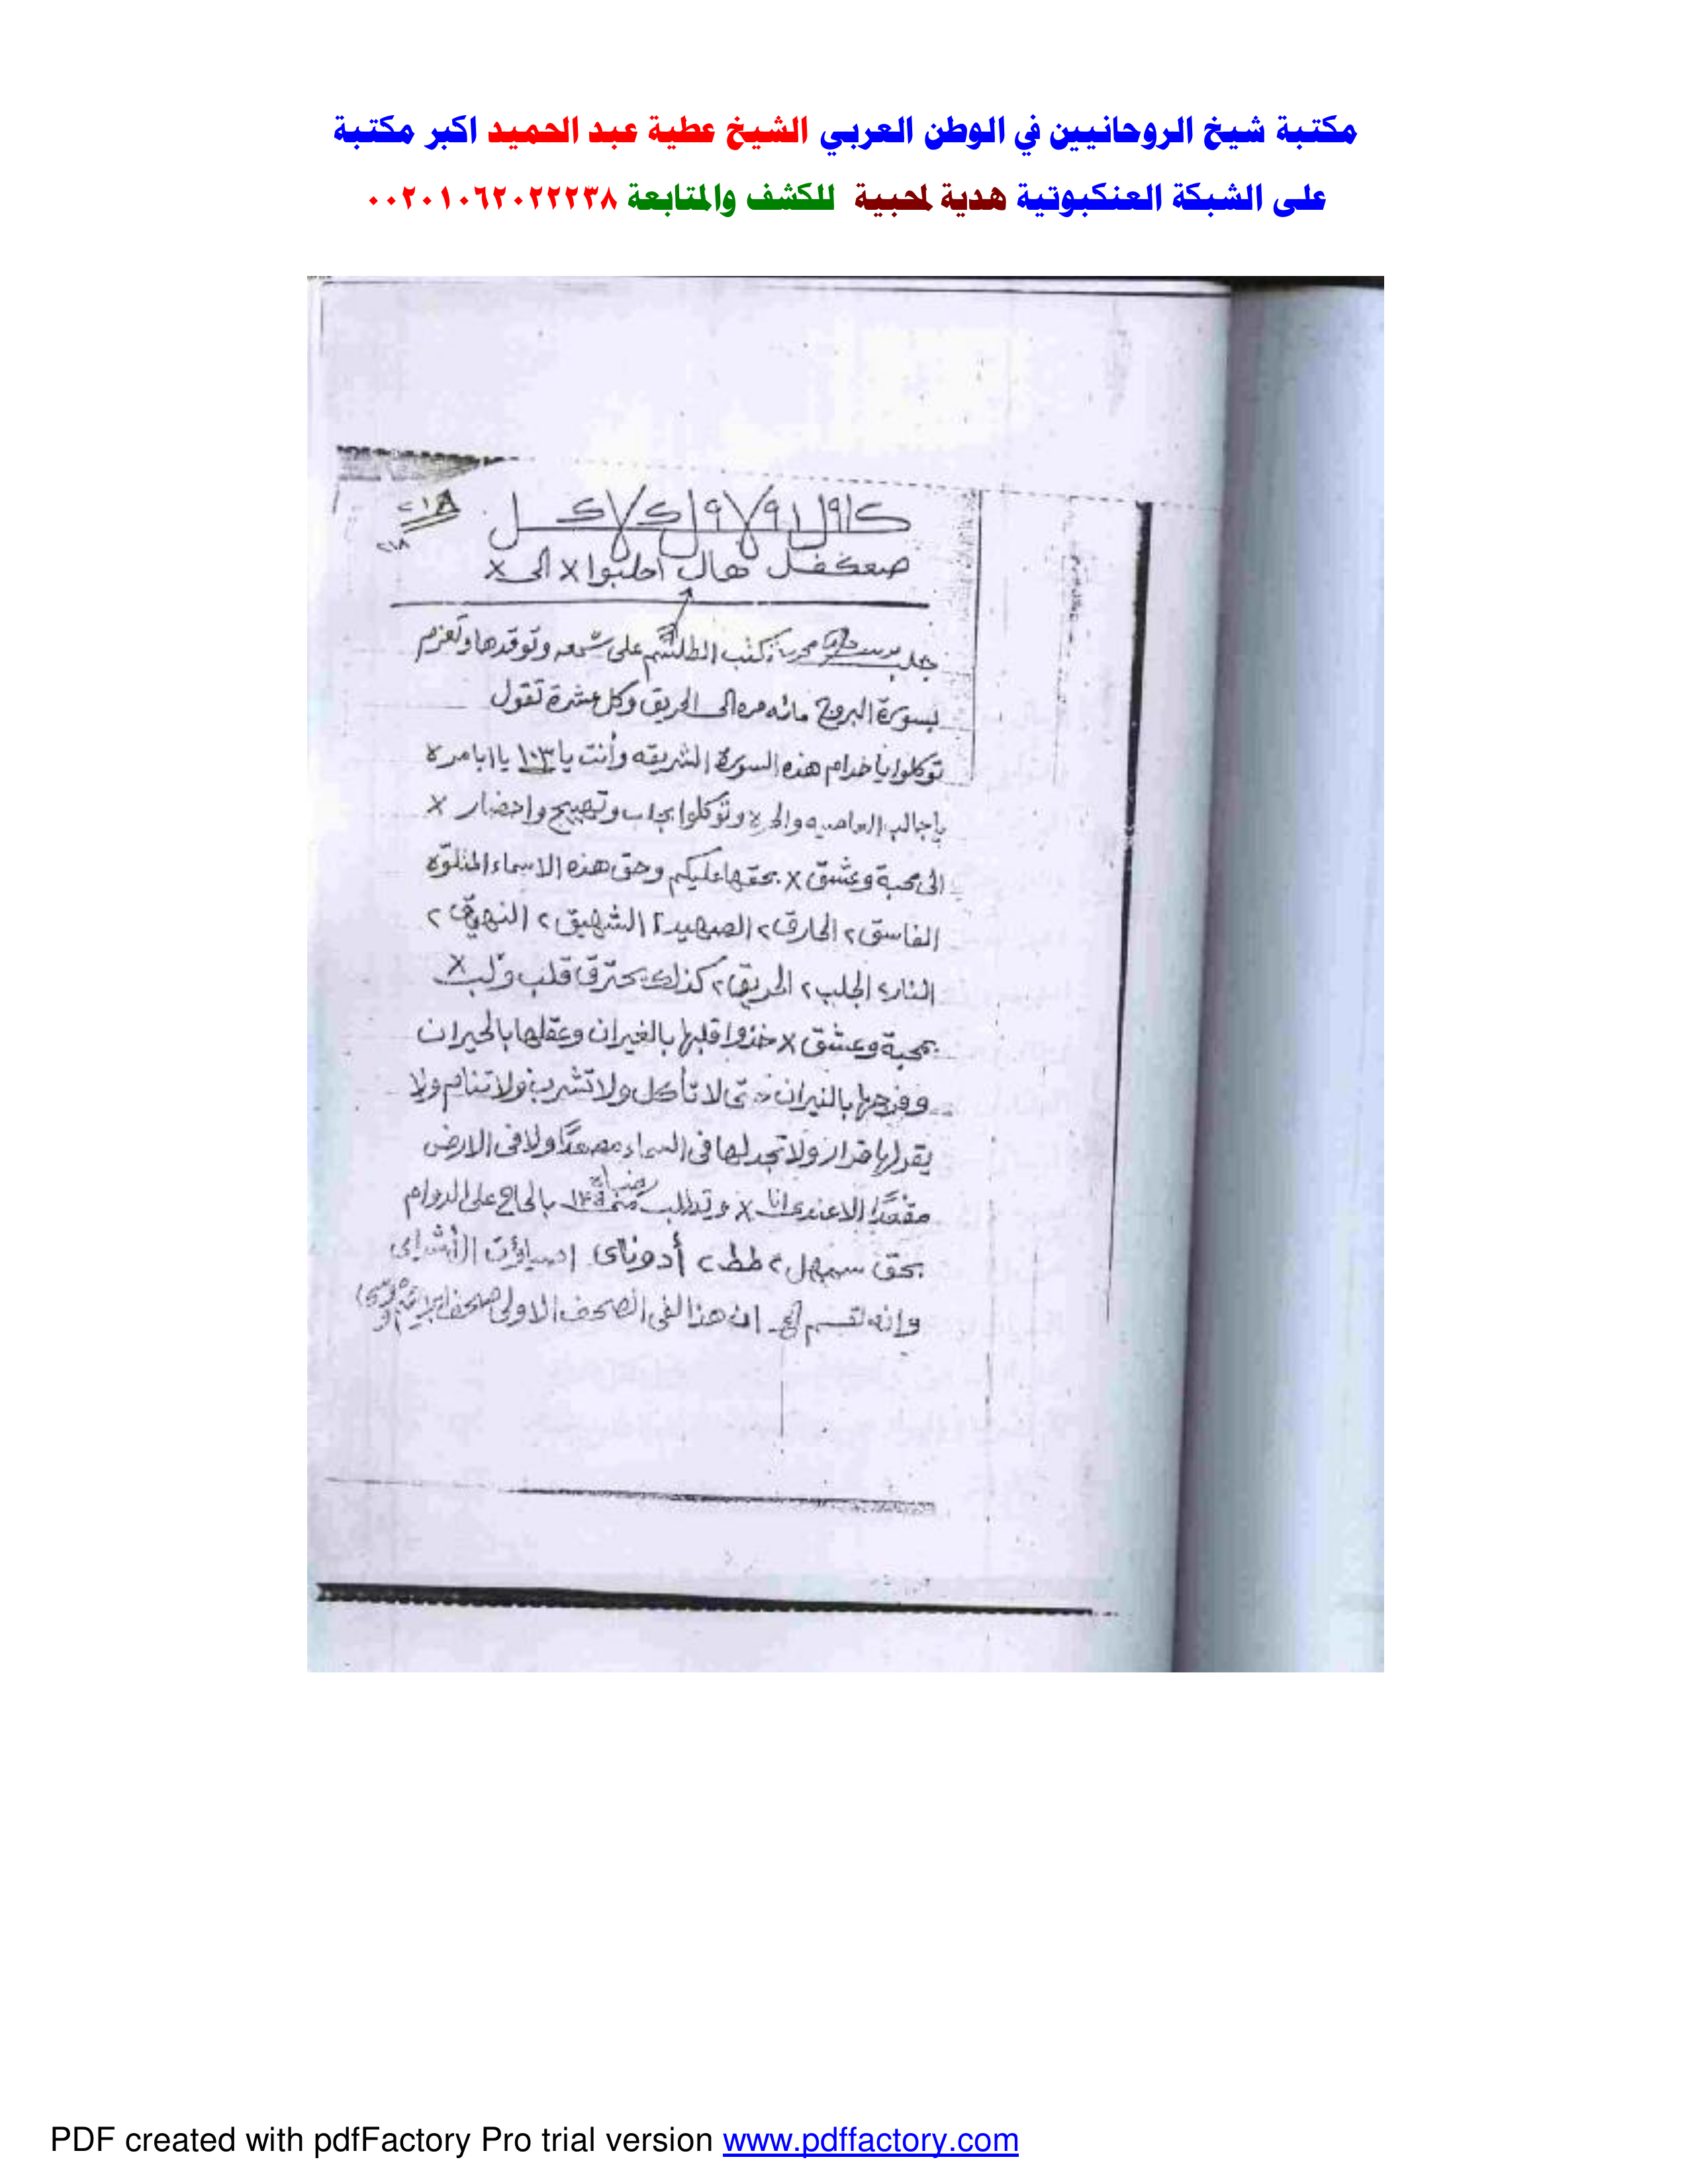 مكتبة شيخ الروحانيين في الوطن العربي الشيخ عطية عبد الحميد اكبر مكتبة
على الشبكة العنكبوتية هدية لمحبية للكشف والمتابعة ٠٠٢٠١٠٦٢٠٢٢٢٣٨
٢١٨
٢١٨
صعكفل هال اجلبوا x الى x
جلب تكتب الطلسم على شمعه وتوقدها وتعزم
بسورة البروج مائه مره الى الحريق وكل عشرة تقول
توكلوا يا خدام هذه السورة الشريفه وأنت يا ١٠٣ يا ابا مره
يا جالب وتوكلوا بجلب وتهييج واحضار x
الى محبة وعشق x بحقها عليكم وحق هذه الاسماء المتلوه
الفاسق ٢ الحارق ٢ الصهيد ٢ الشهيق ٢ النهيق ٢
النار ٢ الجلب ٢ الحريق ٢ كذلك يحترق قلب ولب x
بمحبة وعشق x خذوا قلبها بالغيران وعقلها بالحيران
وفرجها بالنيران حتى لا تأكل ولا تشرب ولا تنام ولا
يقر لها قرار ولا تجد لها فى السماء مصعدًا ولا فى الارض
مقعدًا الا عندى انا x وتطلب منى بالحاح على الدوام
بحق سهل ٢ طط ٢ أدوناى اصباؤت
وانه لقسم الخ ان هذا لفى الصحف الاولى صحف ابراهيم وموسى
PDF created with pdfFactory Pro trial version www.pdffactory.com